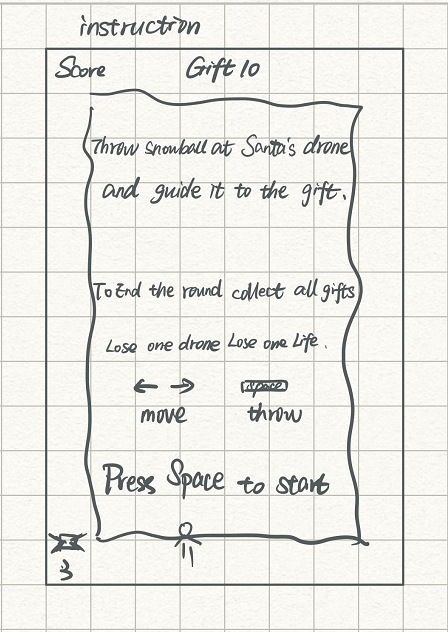 instruction
Score Gift 10
Throw snowball at Santa's drone
and guide it to the gift.
To End the round collect all gifts
Lose one drone Lose one Life.
← → space
move throw
Press Space to start
3